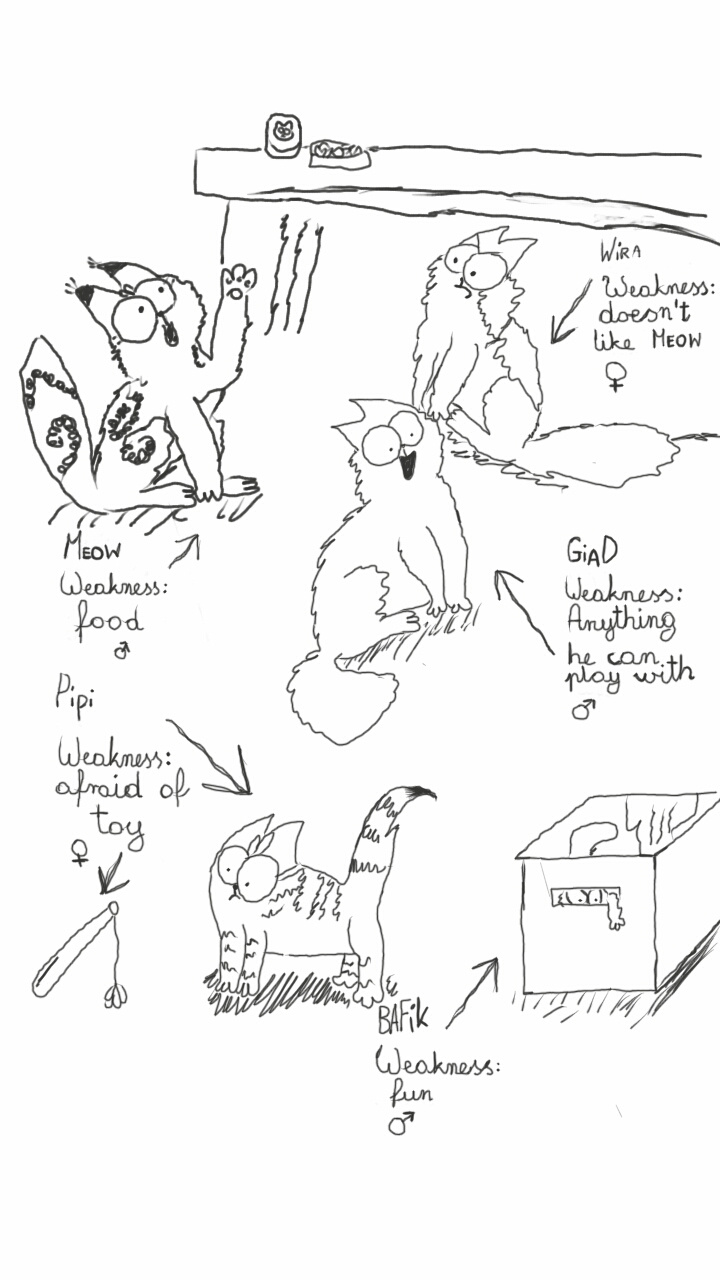 WiRA
Weakness:
doesn't
like MEOW
♀
MEOW
Weakness:
food
♂
GiAD
Weakness:
Anything
he can
play with
♂
Pipi
Weakness:
afraid of
toy
♀
BAFiK
Weakness:
fun
♂